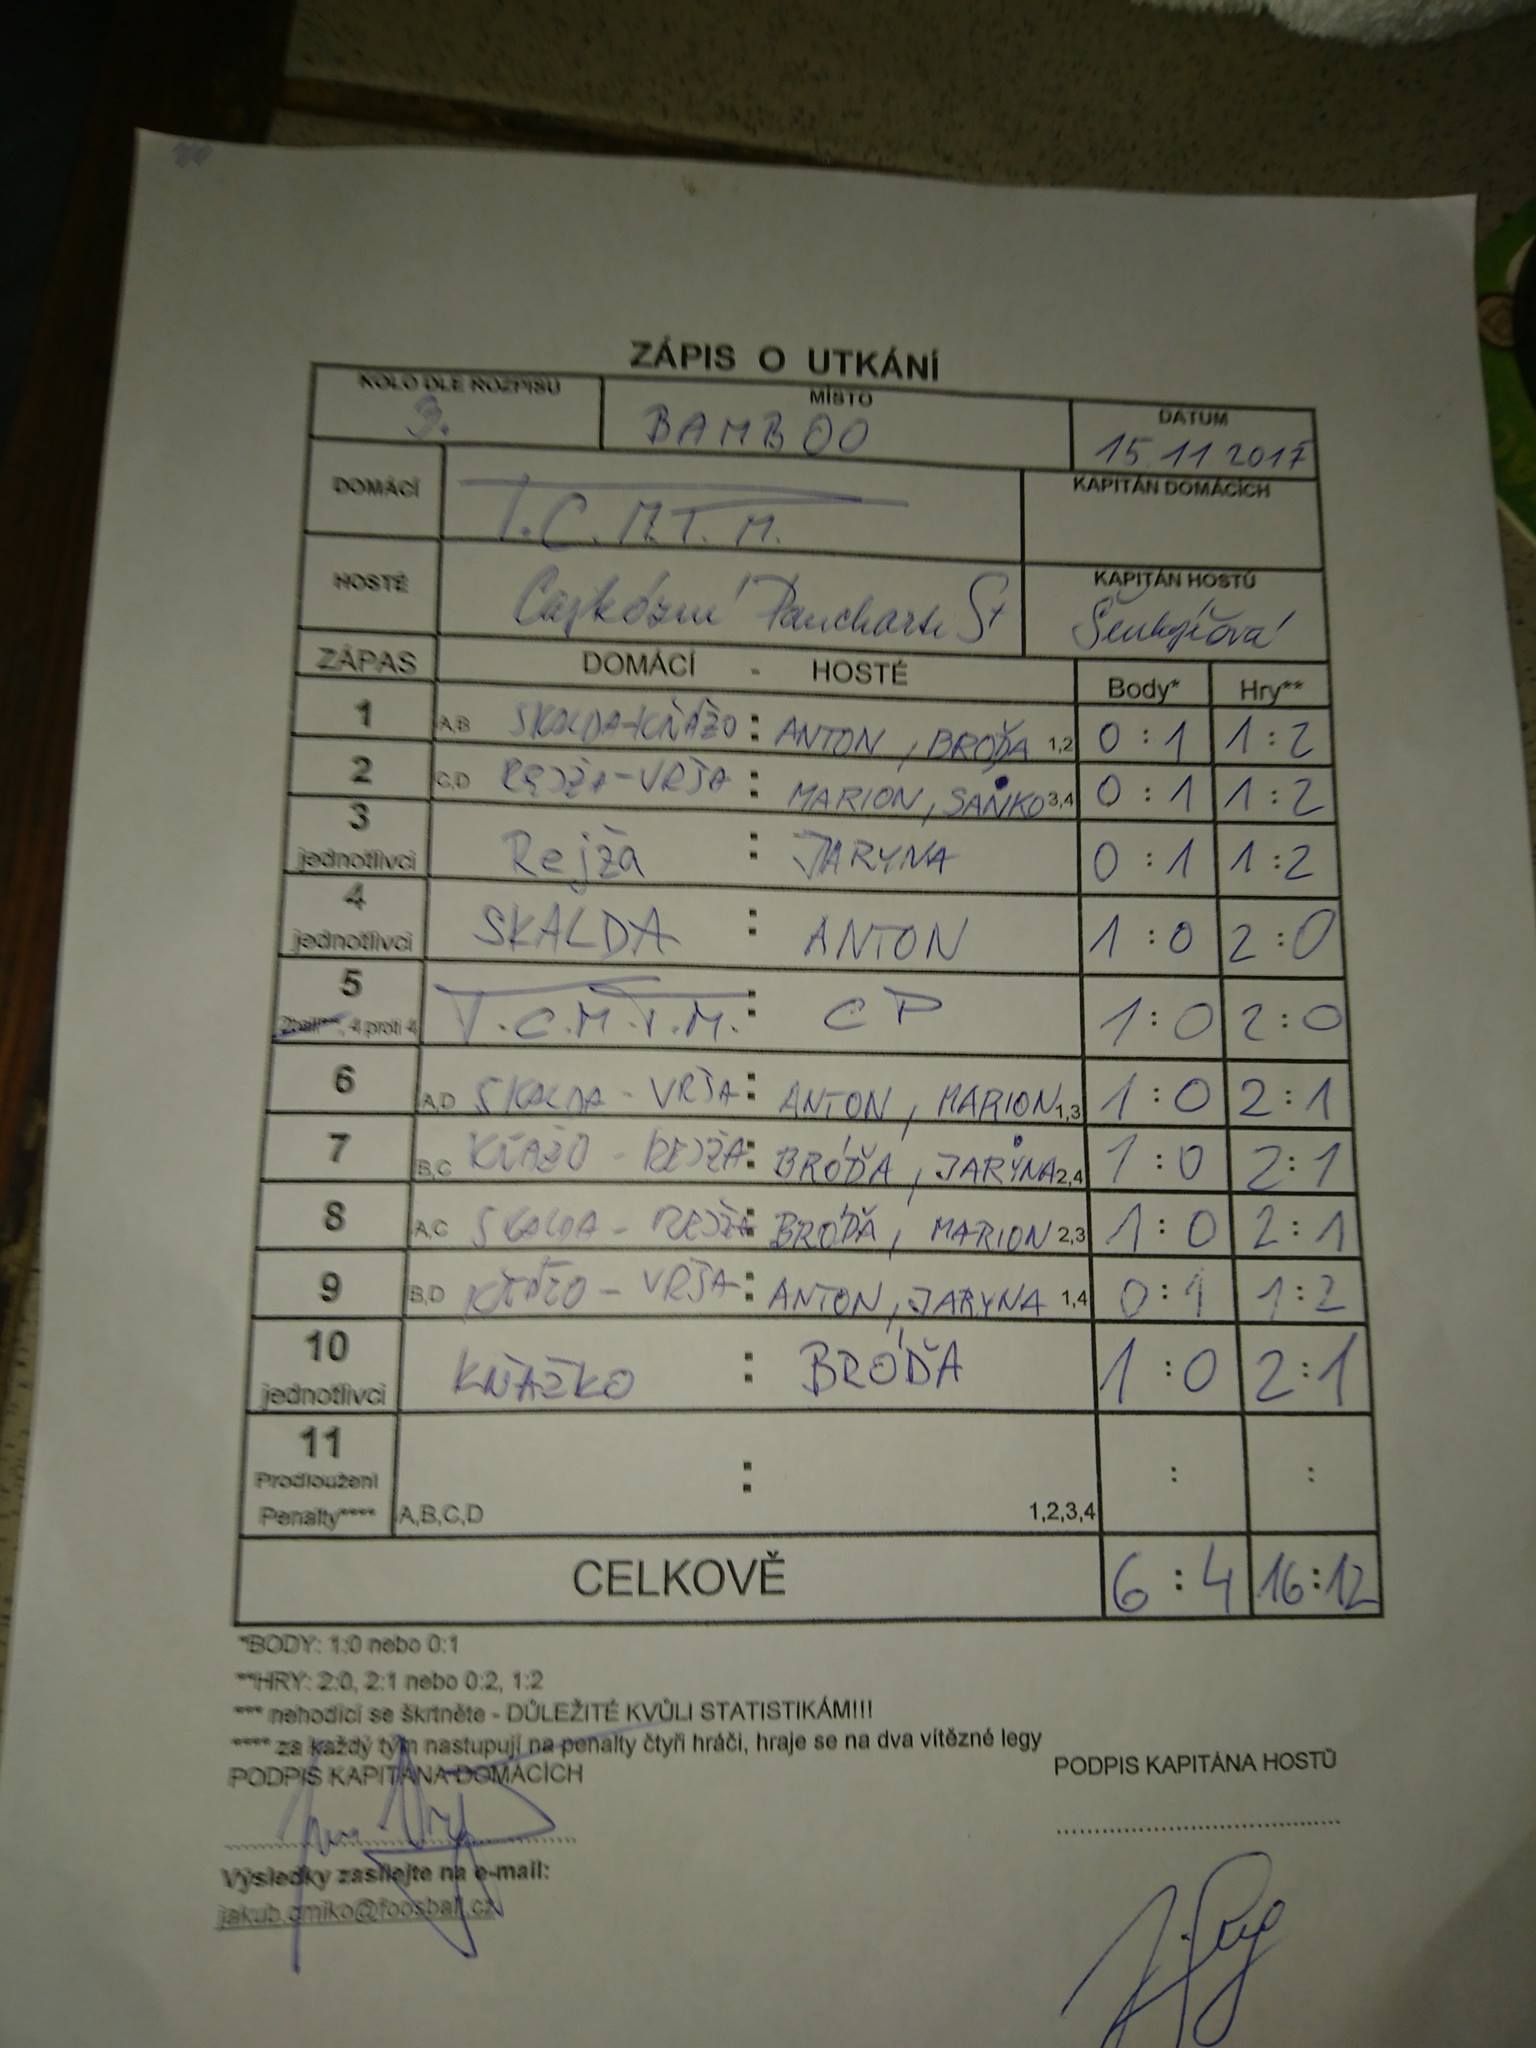 ZÁPIS O UTKÁNÍ
KOLO DLE ROZPISU MÍSTO DATUM
3. BAMBOO 15.11 2017
DOMÁCÍ T.C.M.T.M. KAPITÁN DOMÁCÍCH
HOSTÉ KAPITÁN HOSTŮ
ZÁPAS DOMÁCÍ - HOSTÉ Body* Hry**
1 A,B SKALDA-KŇAŽO : ANTON, BRÓĎA 1,2 0 : 1 1 : 2
2 C,D REJŽA-VRŠA : MARION, SAŇKO 3,4 0 : 1 1 : 2
3 jednotlivci Rejža : JARYNA 0 : 1 1 : 2
4 jednotlivci SKALDA : ANTON 1 : 0 2 : 0
5 2ball***, 4 proti 4 T.C.M.T.M. : CP 1 : 0 2 : 0
6 A,D SKALDA - VRŠA : ANTON, MARION 1,3 1 : 0 2 : 1
7 B,C KŇAŽO - REJŽA : BRÓĎA, JARYNA 2,4 1 : 0 2 : 1
8 A,C SKALDA - REJŽA : BRÓĎA, MARION 2,3 1 : 0 2 : 1
9 B,D KŇAŽO - VRŠA : ANTON, JARYNA 1,4 0 : 1 1 : 2
10 jednotlivci KŇAŽKO : BRÓĎA 1 : 0 2 : 1
11 Prodloužení : : :
Penalty**** A,B,C,D 1,2,3,4
CELKOVĚ 6 : 4 16 : 12
*BODY: 1:0 nebo 0:1
**HRY: 2:0, 2:1 nebo 0:2, 1:2
*** nehodící se škrtněte - DŮLEŽITÉ KVŮLI STATISTIKÁM!!!
**** za každý tým nastupují na penalty čtyři hráči, hraje se na dva vítězné legy
PODPIS KAPITÁNA DOMÁCÍCH PODPIS KAPITÁNA HOSTŮ
Výsledky zasílejte na e-mail: